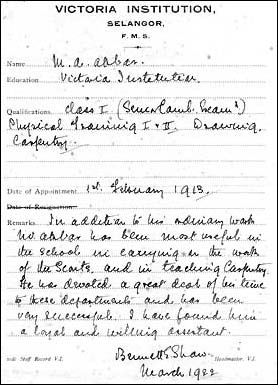 VICTORIA INSTITUTION,
SELANGOR,
F. M. S.
Name M. A. Akbar.
Education Victoria Institution.
Qualifications Class I (Senr Camb. Exam?)
Physical Training I & II. Drawing.
Carpentry.
Date of Appointment 1st February 1913.
Date of Resignation
Remarks In addition to his ordinary work
Mr. Akbar has been most useful in
the school in carrying on the work
of the Scouts, and in teaching Carpentry.
He has devoted a great deal of his time
to these departments and has been
very successful. I have found him
a loyal and willing assistant.
Bennett E. Shaw
Staff Record V.I. Headmaster, V.I.
March 1922